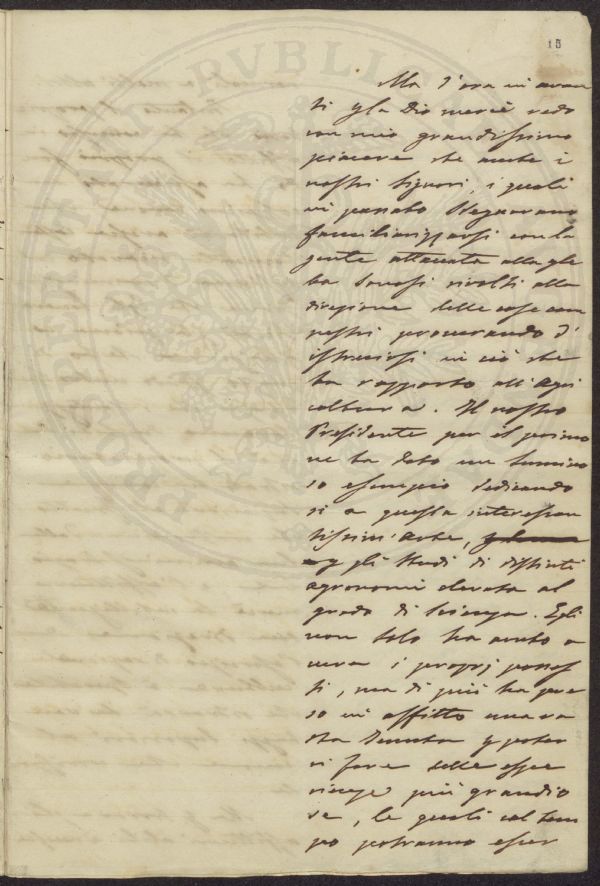 15
Ma d'ora in avan
ti p la Dio mercè vedo
con mio grandissimo
piacere che anche i
nostri Signori, i quali
in passato sdegnavano
familiarizzarsi con la
gente attaccata alla gle
ba sonosi rivolti alla
direzione delle cose cam
pestri procurando d'
istruirsi in ciò che
ha rapporto all'Agri
coltura. Il nostro
Presidente per il primo
ne ha dato un lumino
so esempio dedicando
si a questa interessan
tissim'arte,
p gli studi di distinti
agronomi elevata al
grado di scienza. Egli
non solo ha avuto a
cura i proprj posses
si, ma di più ha pre
so in affitto una va
sta Tenuta p poter
vi fare delle espe
rienze più grandio
se, le quali col tem
po potranno esser
PROSPERITATI PUBLICAE